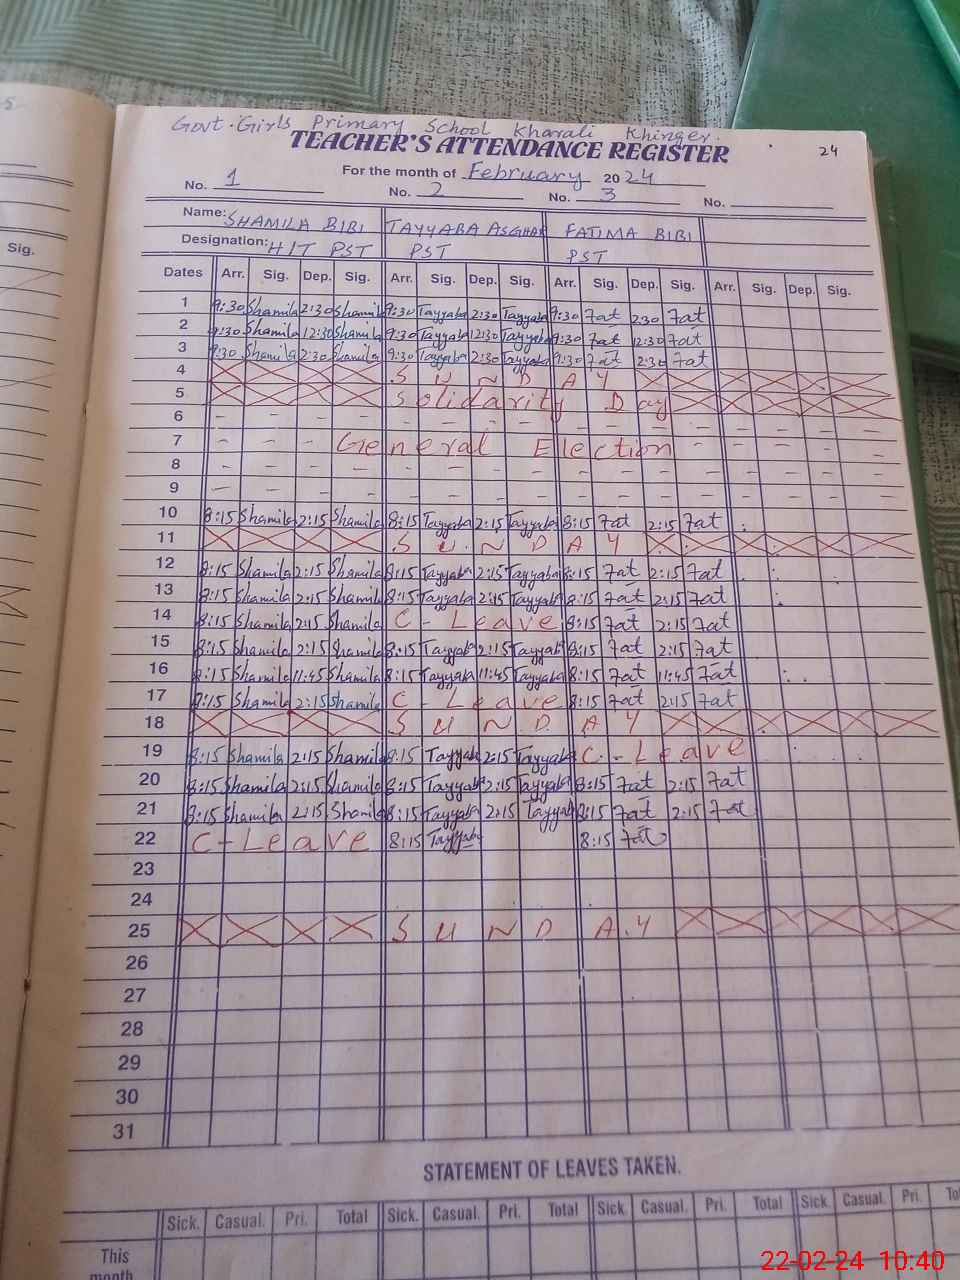 5
Sig.
Govt. Girls Primary School Kharali Khinger.
TEACHER'S ATTENDANCE REGISTER 24
For the month of February 2024
No. 1 No. 2 No. 3 No.
Name: SHAMILA BIBI TAYYABA ASGHAR FATIMA BIBI
Designation: H/T PST PST PST
Dates Arr. Sig. Dep. Sig. Arr. Sig. Dep. Sig. Arr. Sig. Dep. Sig. Arr. Sig. Dep. Sig.
1 9:30 Shamila 2:30 Shamila 9:30 Tayyaba 2:30 Tayyaba 9:30 Fat 2:30 Fat
2 9:30 Shamila 12:30 Shamila 9:30 Tayyaba 12:30 Tayyaba 9:30 Fat 12:30 Fat
3 9:30 Shamila 2:30 Shamila 9:30 Tayyaba 2:30 Tayyaba 9:30 Fat 2:30 Fat
4 SUNDAY
5 Solidarity Day
6
7 General Election
8
9
10 8:15 Shamila 2:15 Shamila 8:15 Tayyaba 2:15 Tayyaba 8:15 Fat 2:15 Fat
11 SUNDAY
12 8:15 Shamila 2:15 Shamila 8:15 Tayyaba 2:15 Tayyaba 8:15 Fat 2:15 Fat
13 8:15 Shamila 2:15 Shamila 8:15 Tayyaba 2:15 Tayyaba 8:15 Fat 2:15 Fat
14 8:15 Shamila 2:15 Shamila C - Leave 8:15 Fat 2:15 Fat
15 8:15 Shamila 2:15 Shamila 8:15 Tayyaba 2:15 Tayyaba 8:15 Fat 2:15 Fat
16 8:15 Shamila 11:45 Shamila 8:15 Tayyaba 11:45 Tayyaba 8:15 Fat 11:45 Fat
17 8:15 Shamila 2:15 Shamila C - Leave 8:15 Fat 2:15 Fat
18 SUNDAY
19 8:15 Shamila 2:15 Shamila 8:15 Tayyaba 2:15 Tayyaba C - Leave
20 8:15 Shamila 2:15 Shamila 8:15 Tayyaba 2:15 Tayyaba 8:15 Fat 2:15 Fat
21 8:15 Shamila 2:15 Shamila 8:15 Tayyaba 2:15 Tayyaba 8:15 Fat 2:15 Fat
22 C - Leave 8:15 Tayyaba 8:15 Fat
23
24
25 SUNDAY
26
27
28
29
30
31
STATEMENT OF LEAVES TAKEN.
Sick. Casual. Pri. Total Sick. Casual. Pri. Total Sick. Casual. Pri. Total Sick. Casual. Pri. To
This
month
22-02-24 10:40